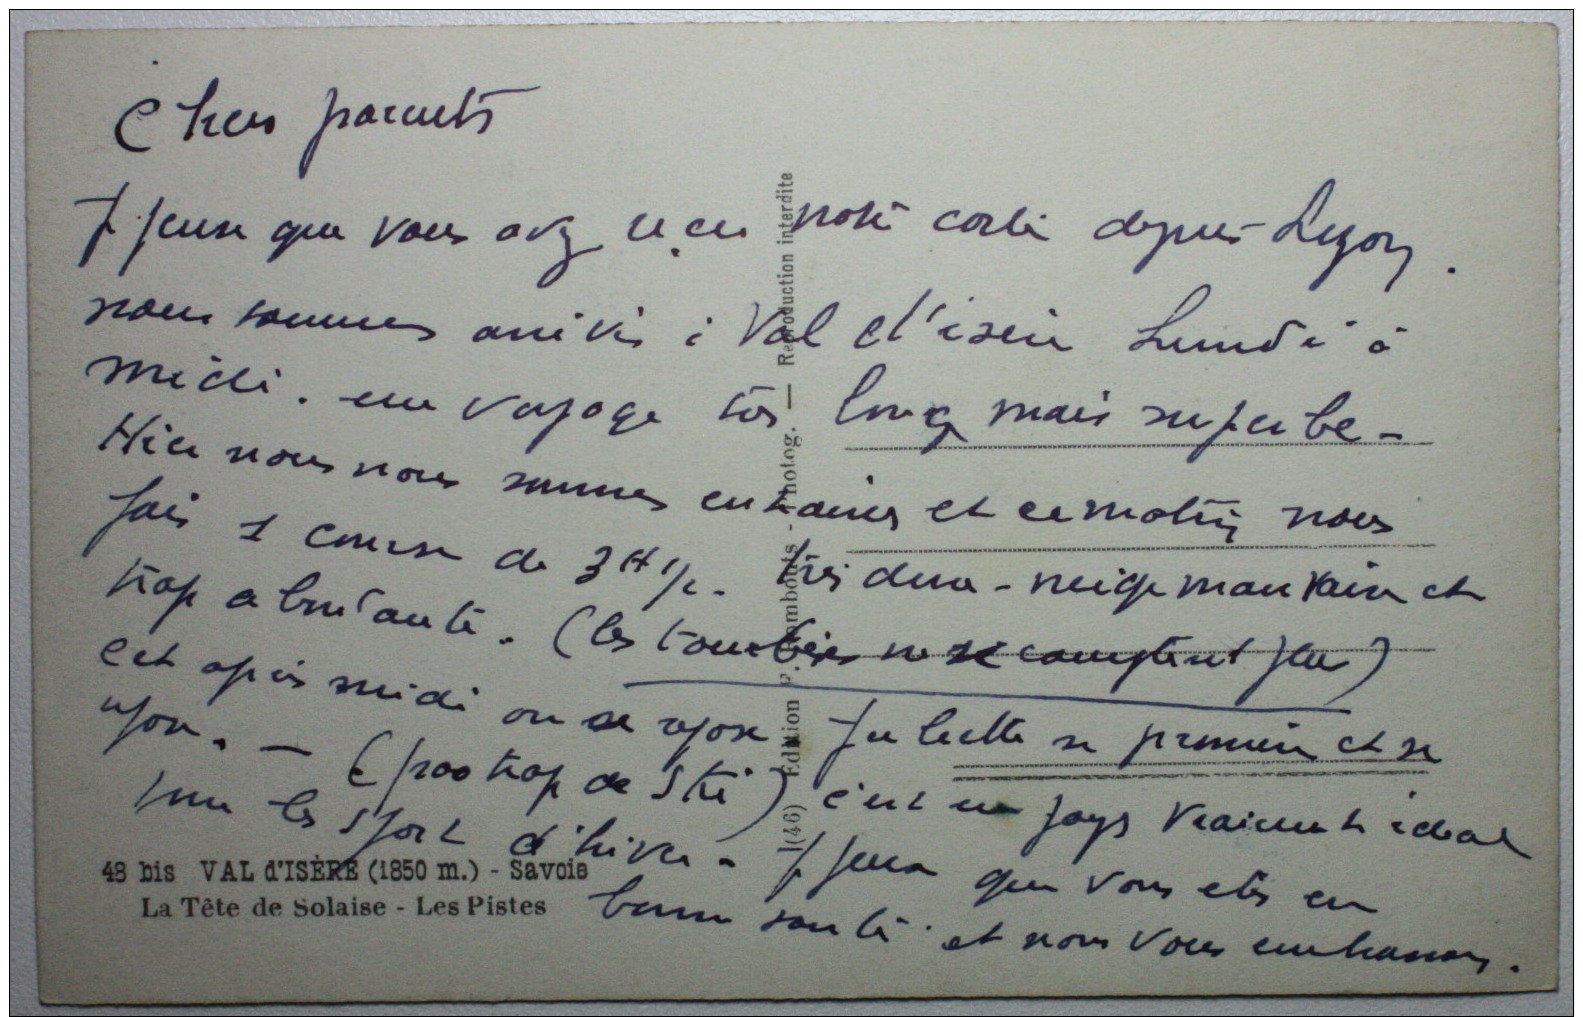 Chers parents
Je pense que vous avez reçu notre carte depuis Lyon.
nous sommes arrivés à Val d'isère Lundi à
midi. un voyage très long mais superbe -
Hier nous nous sommes entrainés et ce matin nous
fais 1 course de 3H 1/2. très dure - neige mauvaise et
trop abondante. (les tombées ne se comptent plus)
Cet après midi on se repose Juliette se promène et se
repose. — (pas trop de Ski) c'est un pays vraiment idéal
pour les sport d'hiver - Je pense que vous etes en
bonne santé et nous vous embrassons.
48 bis VAL d'ISÈRE (1850 m.) - Savoie
La Tête de Solaise - Les Pistes
1(46) Edition - Photog. — Reproduction interdite